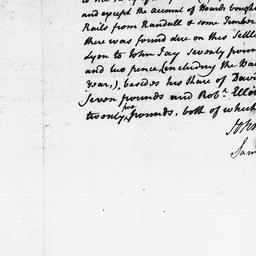 and except the account of Boards bough
Rails from Randall & some Timber
there was found due on this Settle
Lyon to John Jay Seventy poun
and two pence, (including the Ba
Year,), besides his Share of Davi
Seven pounds and Robt. Ello
twenty pounds, both of which
John
Sam